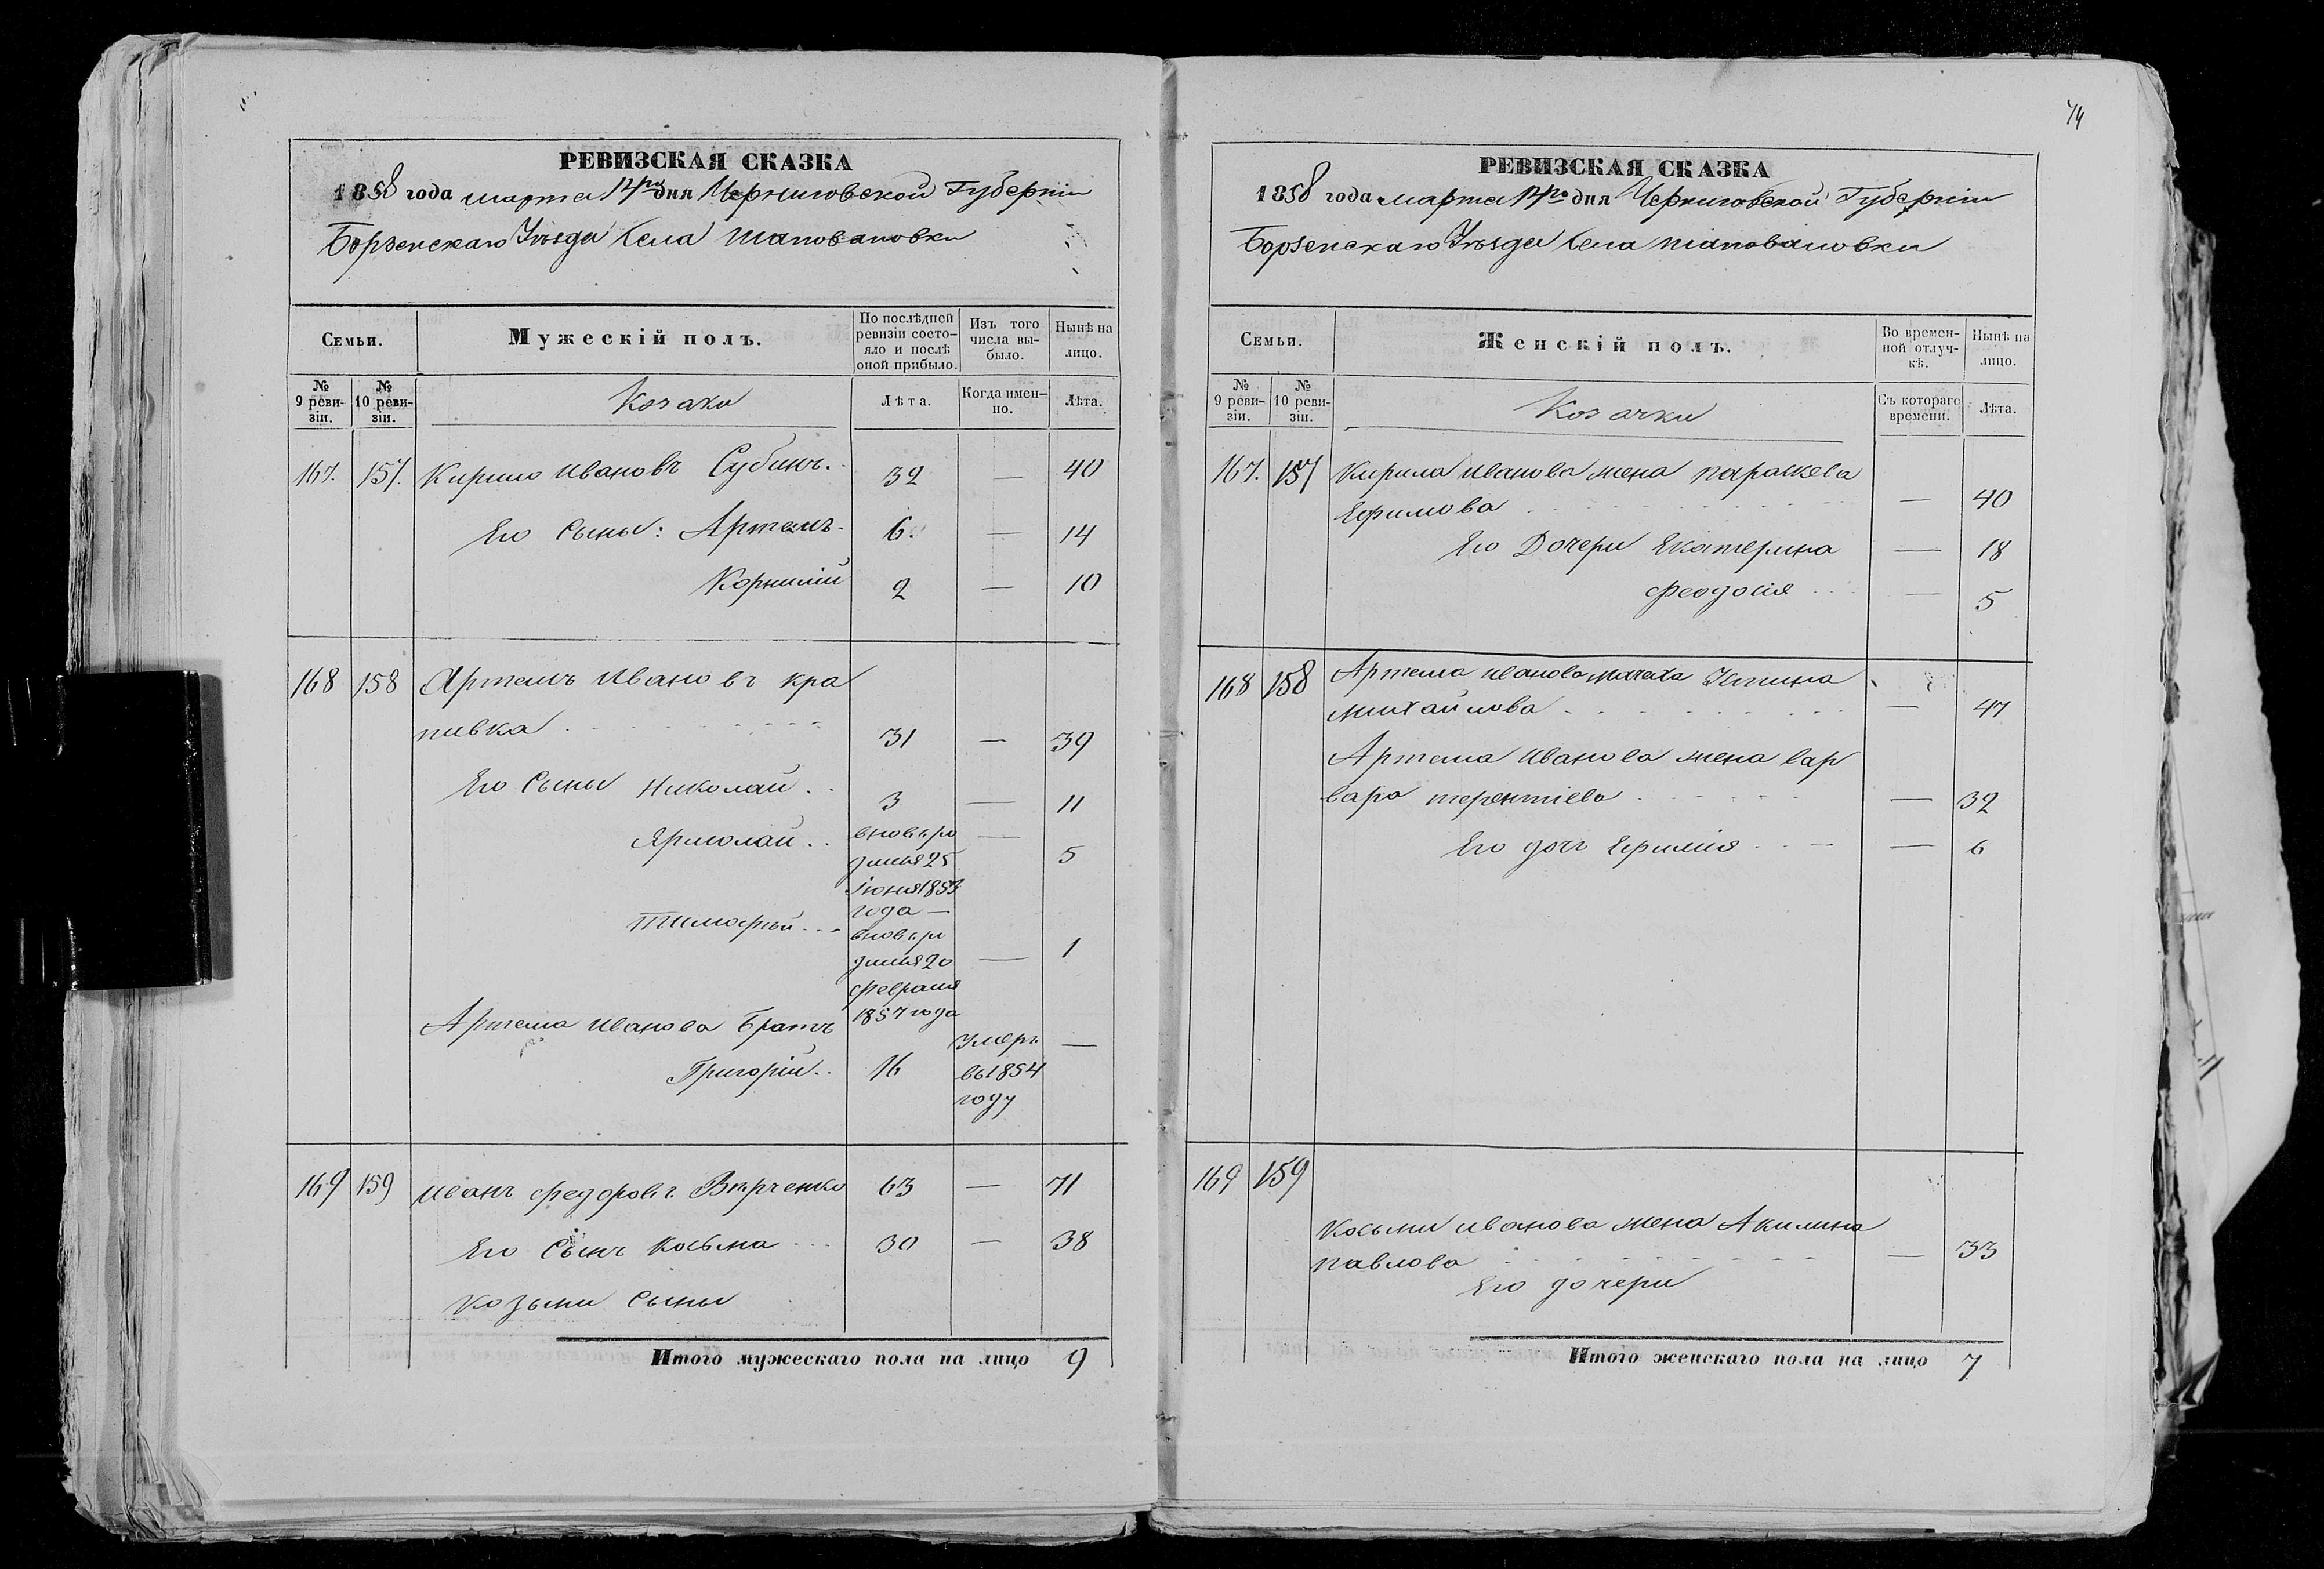 РЕВИЗСКАЯ СКАЗКА
1858 года марта 14го дня Черниговской Губерніи
Борзенскаго Уѣзда Села Шаповаловки
Семьи.
Мужескій полъ.
По послѣдней ревизіи состо-
яло и послѣ оной прибыло.
Изъ того числа вы-
было.
Нынѣ на лицо.
№ 9 реви-
зіи.
№ 10 реви-
зіи.
Козаки
Лѣта.
Когда имен-
но.
Лѣта.
167. 157. Кирило Ивановъ Субинъ. 32 — 40
Его Сыны: Артемъ. 6. — 14
Корнилій 2 — 10
168 158 Артемъ Ивановъ Кра
пивка 31 — 39
Его Сыны Николай 3 — 11
Ярмолай вновь ро — 5
дился 25
Іюня 1853
года —
Тимофей вновь ро — 1
дился 20
февраля
1857 года
Артема Иванова Братъ
Григорій 16 Умеръ —
въ 1854
году
169 159 Иванъ Федоровъ 63 — 71
Его Сынъ Косьма 30 — 38
Козьми Сыны
Итого мужескаго пола на лицо 9
74
РЕВИЗСКАЯ СКАЗКА
1858 года марта 14го дня Черниговской Губерніи
Борзенскаго Уѣзда Села Шаповаловки
Семьи.
Женскій полъ.
Во времен-
ной отлуч-
кѣ.
Нынѣ на лицо.
№ 9 реви-
зіи.
№ 10 реви-
зіи.
Козачки
Съ котораго времени.
Лѣта.
167. 157 Кирила Иванова жена Параскева
Ефимова — 40
Его Дочери Екатерина — 18
Феодосія — 5
168 158 Артема Иванова мачиха Устина
Михайлова — 47
Артема Иванова жена Вар
вара Терентіева — 32
Его дочь Ефимія — 6
169 159
Косьми Иванова жена Акилина
Павлова — 33
Его дочери
Итого женскаго пола на лицо 7